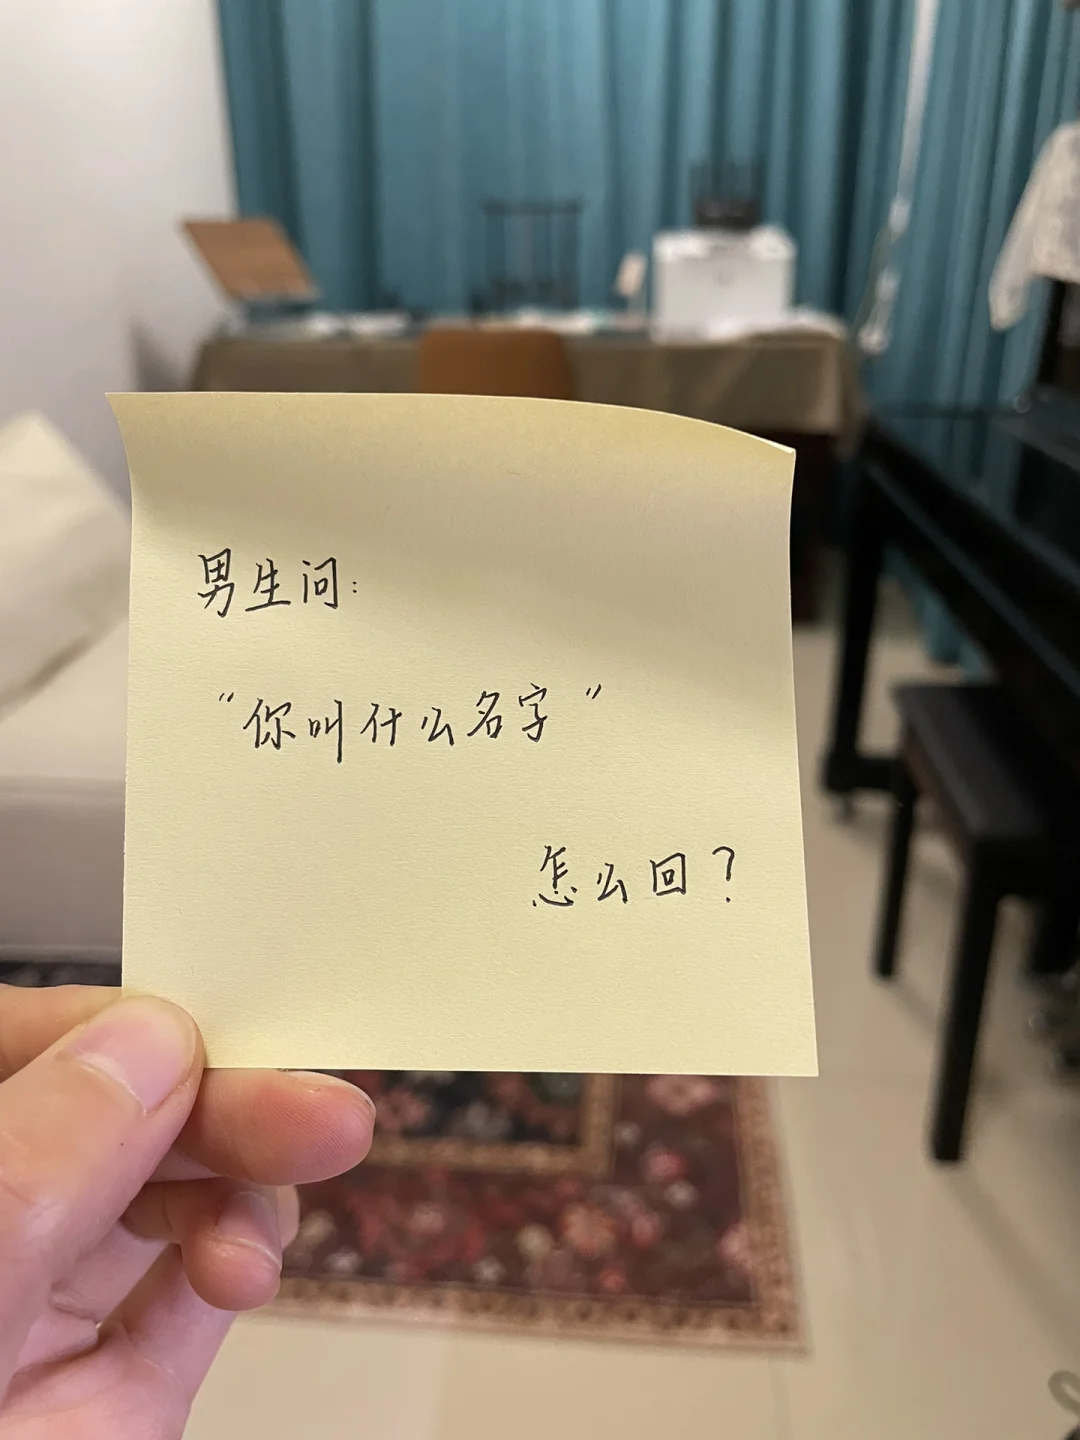 男生问：
“你叫什么名字”
怎么回？